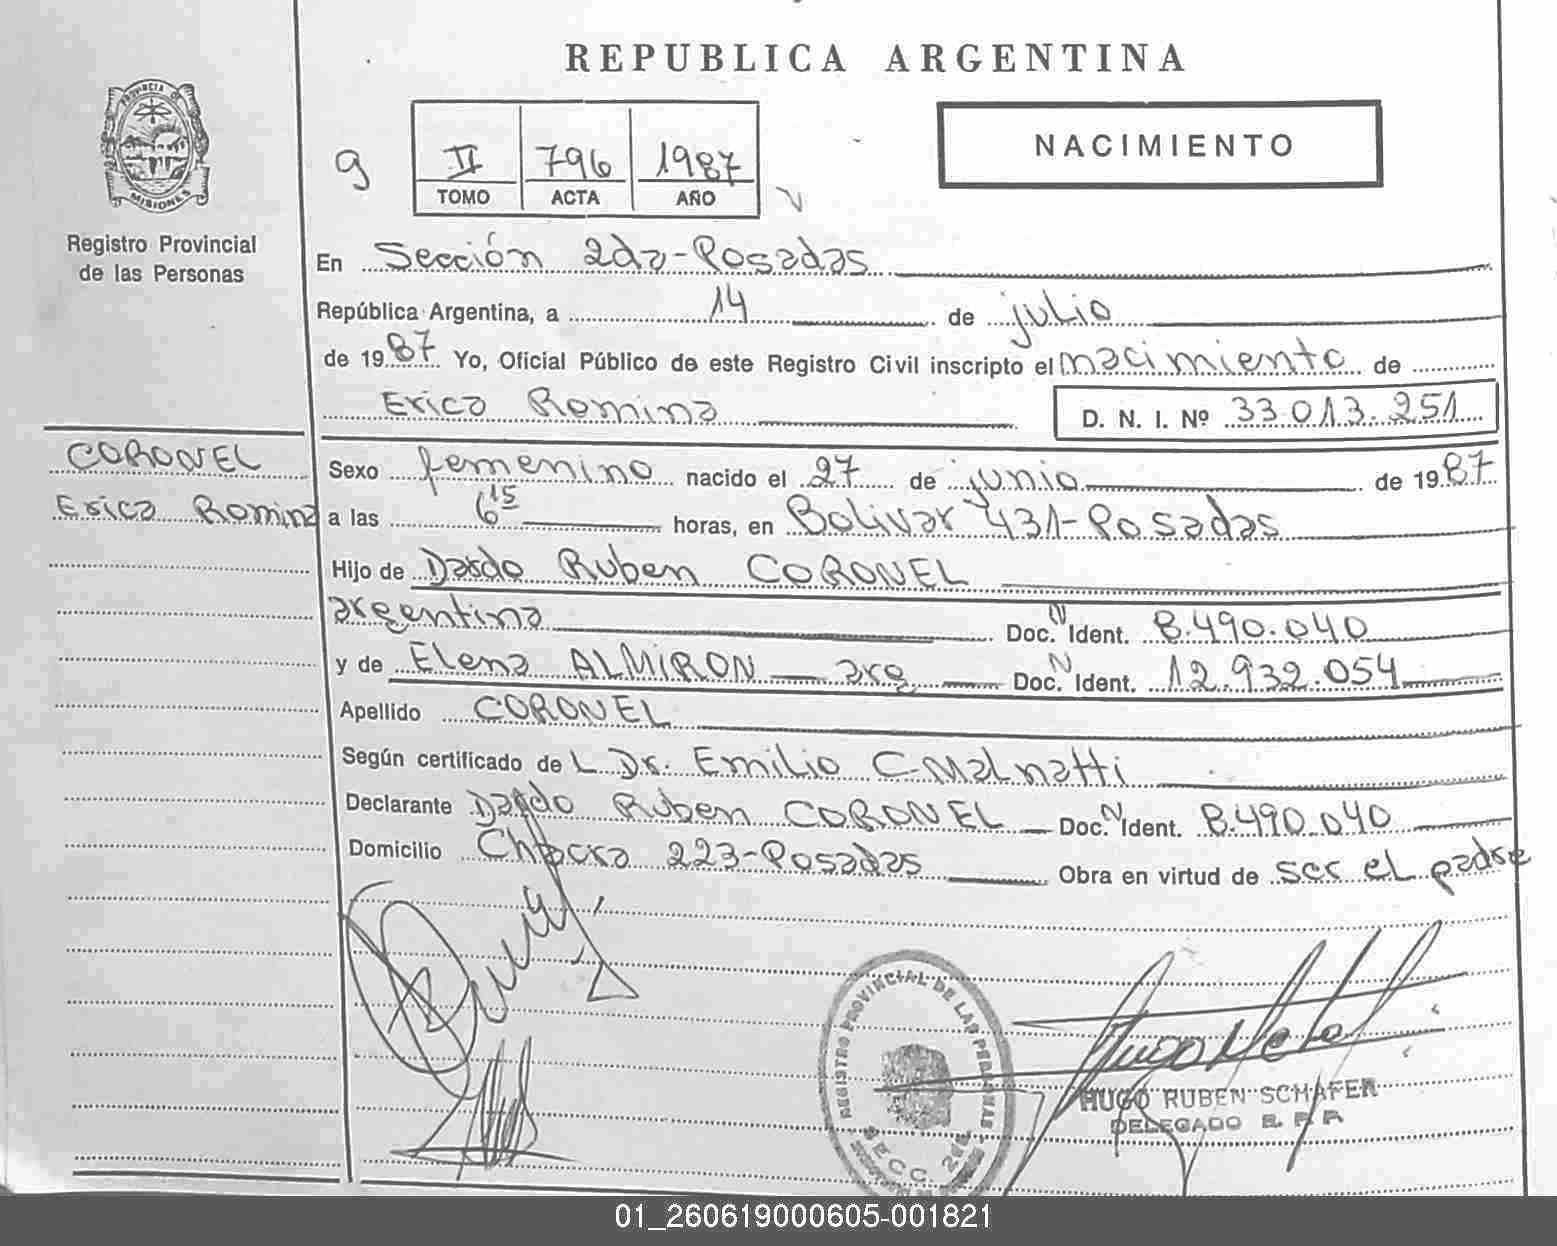 REPUBLICA ARGENTINA
PROVINCIA DE
MISIONES
Registro Provincial
de las Personas
9
II 796 1987
TOMO ACTA AÑO
NACIMIENTO
En Sección 2da-Posadas
República Argentina, a 14 de julio
de 1987 Yo, Oficial Público de este Registro Civil inscripto el nacimiento de
Erica Romina D. N. I. Nº 33.013.251
CORONEL
Erica Romina
Sexo femenino nacido el 27 de junio de 1987
a las 6 15 horas, en Bolivar 431-Posadas
Hijo de Dardo Ruben CORONEL
argentina Doc. N Ident. 8.490.040
y de Elena ALMIRON arg Doc. N Ident. 12.932.054
Apellido CORONEL
Según certificado de L Dr. Emilio C. Malnatti
Declarante Dardo Ruben CORONEL Doc. N Ident. 8.490.040
Domicilio Chacra 223-Posadas Obra en virtud de ser el padre
REGISTRO PROVINCIAL DE LAS PERSONAS
SECC. 2da.
HUGO RUBEN SCHAFER
DELEGADO R. P. P.
01_260619000605-001821